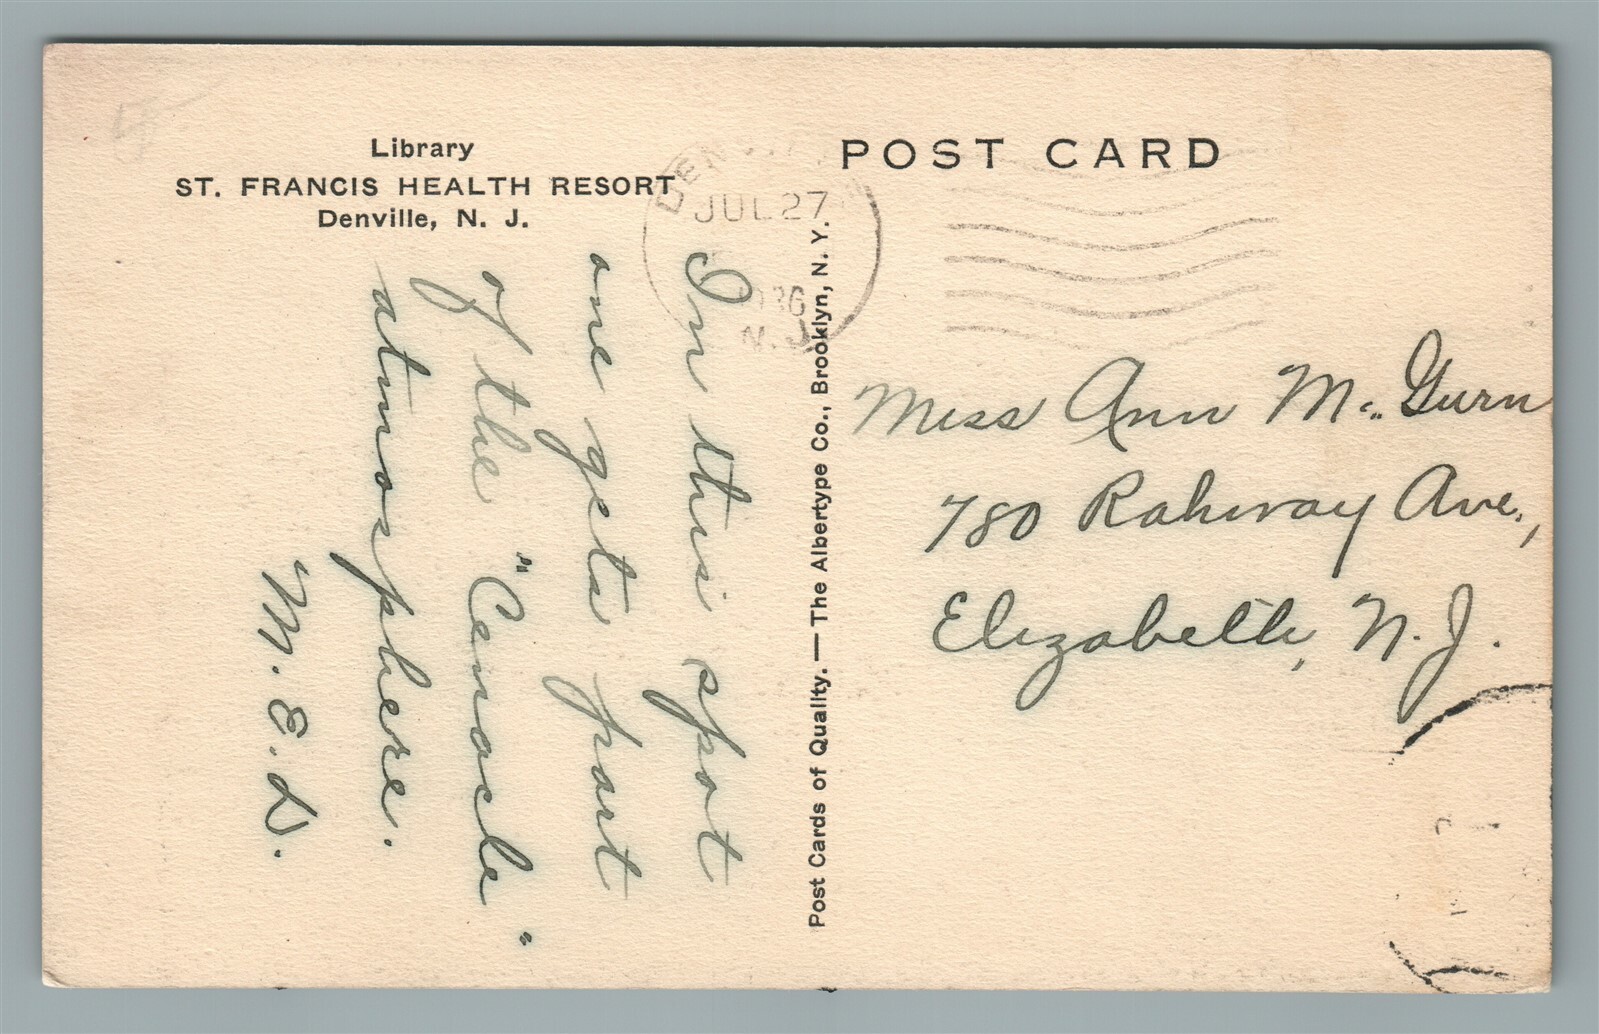 Library
ST. FRANCIS HEALTH RESORT
Denville, N. J.
POST CARD
JUL 27
1936
N.J.
In this spot
one gets part
of the "Cenacle"
atmosphere.
M. E. D.
Post Cards of Quality. — The Albertype Co., Brooklyn, N. Y.
Miss Ann McGurn
780 Rahway Ave.,
Elizabeth, N. J.